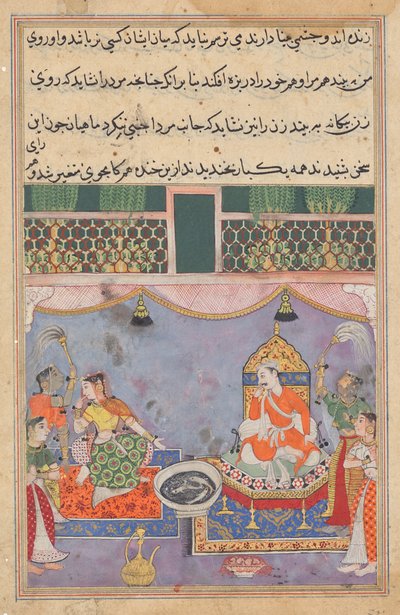 زنده اند و جنبی مینا دارند می ترسم نباید که میان ایشان کسی نر باشد و او روی
من به بیند هم مرا و هم خود را در بزه افکند بنا برانک چنانچه مرد را نشاید که روی
زن بیکانه به بیند زن را نیز نشاید که جانب مرد اجنبی نکرد ماهیان چون این
سخن شنیدند همه یکبار بخندیدند از این خنده هم کامجوی متغیر شد و هم
رای